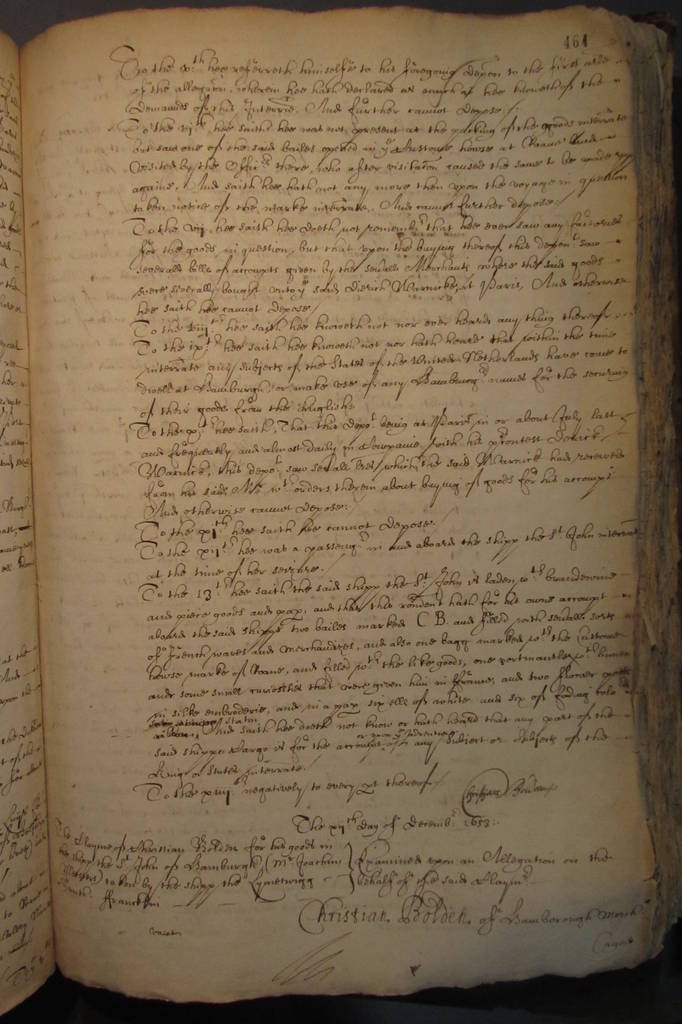 464
To the v.th hee referreth himselfe to his foregoing deposn to the first arle
of the allegaon, wherein hee hath declared as much as hee knoweth of the
Demandes of this Interrie. And further cannot depose /
To the vjth hee saith hee was not present at the packing of the goods interrate
but saw one of the said bailes opened in ye Custome house at Roane and
visited by the Officrs there, who after visitacon caused the same to be made upp
againe, And saith hee hath not any more then upon the voyage in question
taken notice of the marke interrate. And cannot further depose.
To the vij. hee saith hee doeth not remember that hee ever saw any factories
for the goods in question, but that upon the buying thereof this depont saw
severall bills of accompts given by the severall Merchants where the said goods
were severally bought unto ye said Dirick Warnicke, at Paris, And otherwise
hee saith hee cannot depose
To the viijth hee saith hee knoweth not nor ever heard any thing thereof
To the ixth hee saith hee knoweth not nor hath heard that within the time
interrate any subjects of the States of the United Netherlands have come to
dwell at Hamburgh, or make use of any Hamburg names for the securing
of their goods from the English
To the xth hee saith, That this depot being at Paris, in or about July last
and frequently and almost daily in Companie with his Dirick
Warnick, this depot saw severall lres which the said Warnick had received
from his said Mr wth orders therein about buying of goods for his accompt.
And otherwise cannot depose.
To the xjth hee saith hee cannot depose.
To the xijth hee was a passengr in and aboard the shipp the St. John interrate
at the time of her seizure.
To the 13th hee saith the said shipp the St. John is laden wth brandewine
and piece goods and pap, and that this rondent hath for his owne accompt
aboard the said shipp two bailes marked C B. and filled with severall sorts
of French wares and merchandizes, and also one bagg marked wth the Custome
howse marke of Roane, and filled wth the like goods, one portmantle wth linnen
and some small curiosities that were given him in France, and two flower
in silke embroderie, and in a pap six ells of white and six of
And saith hee doeth not know or hath heard that any part of the
said shipps cargo is for the accompt of any subject or subjects of the
King or States interrate.
To the xiiijth negatively to every pt thereof.
Christian Bolden
The xijth day of Decembr 1653.
The Clayme of Christian Bolden for his goods in
the shipp the St. John of Hamburgh (Mr Joachim
) taken by the shipp the Lymetwigg
Francklin
Examined upon an Allegation on the
behalf of the said Claymr
Christian Bolden of Hamborough Merch